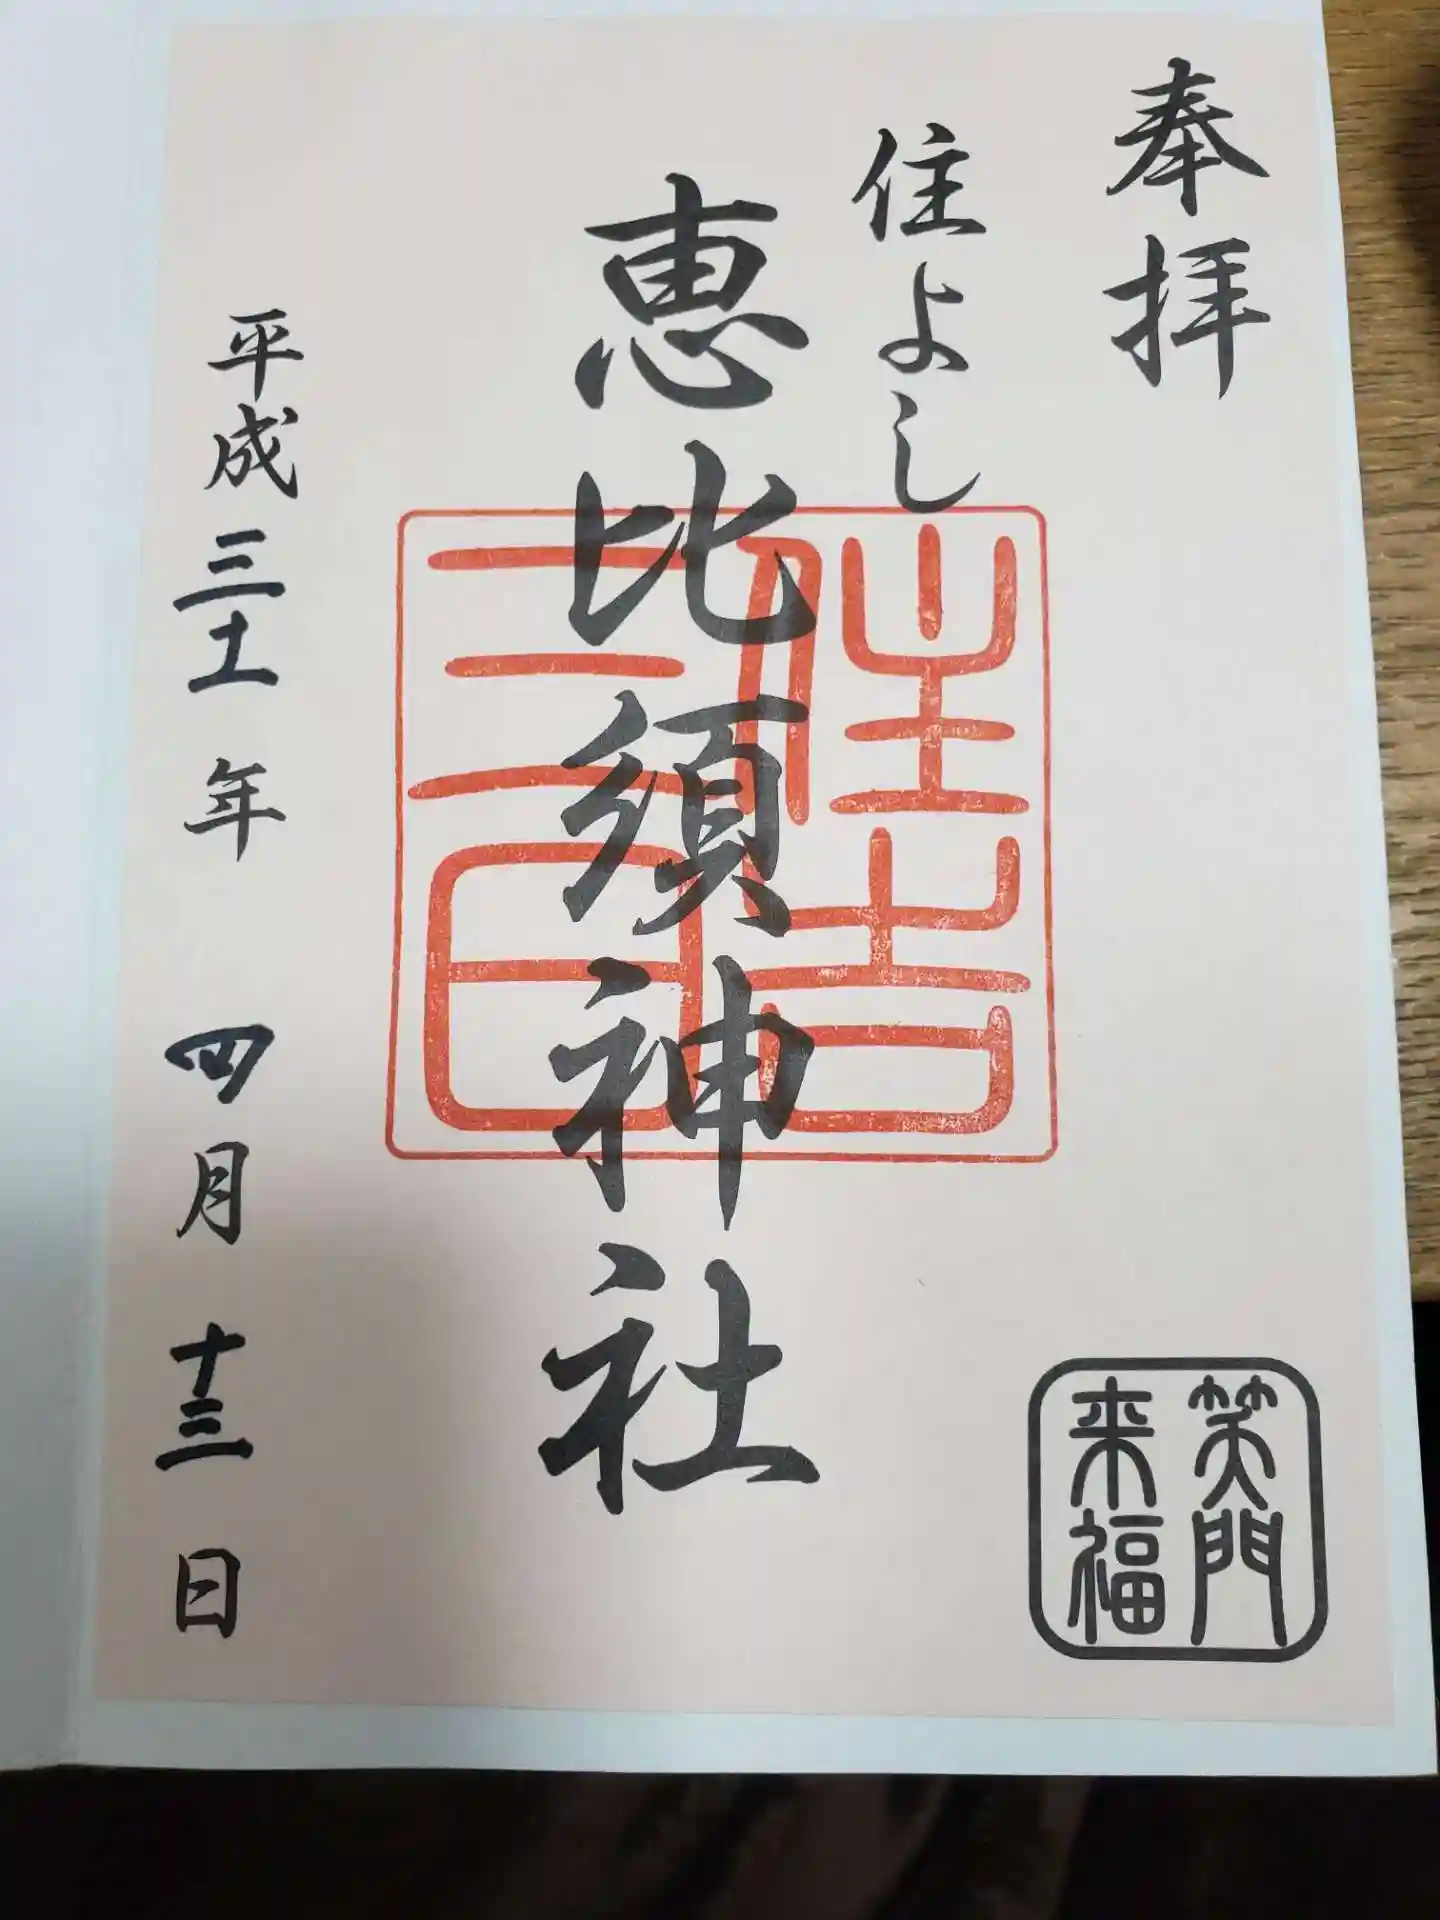 奉拝
住よし
恵比須神社
平成三十一年 四月十三日
笑門
来福